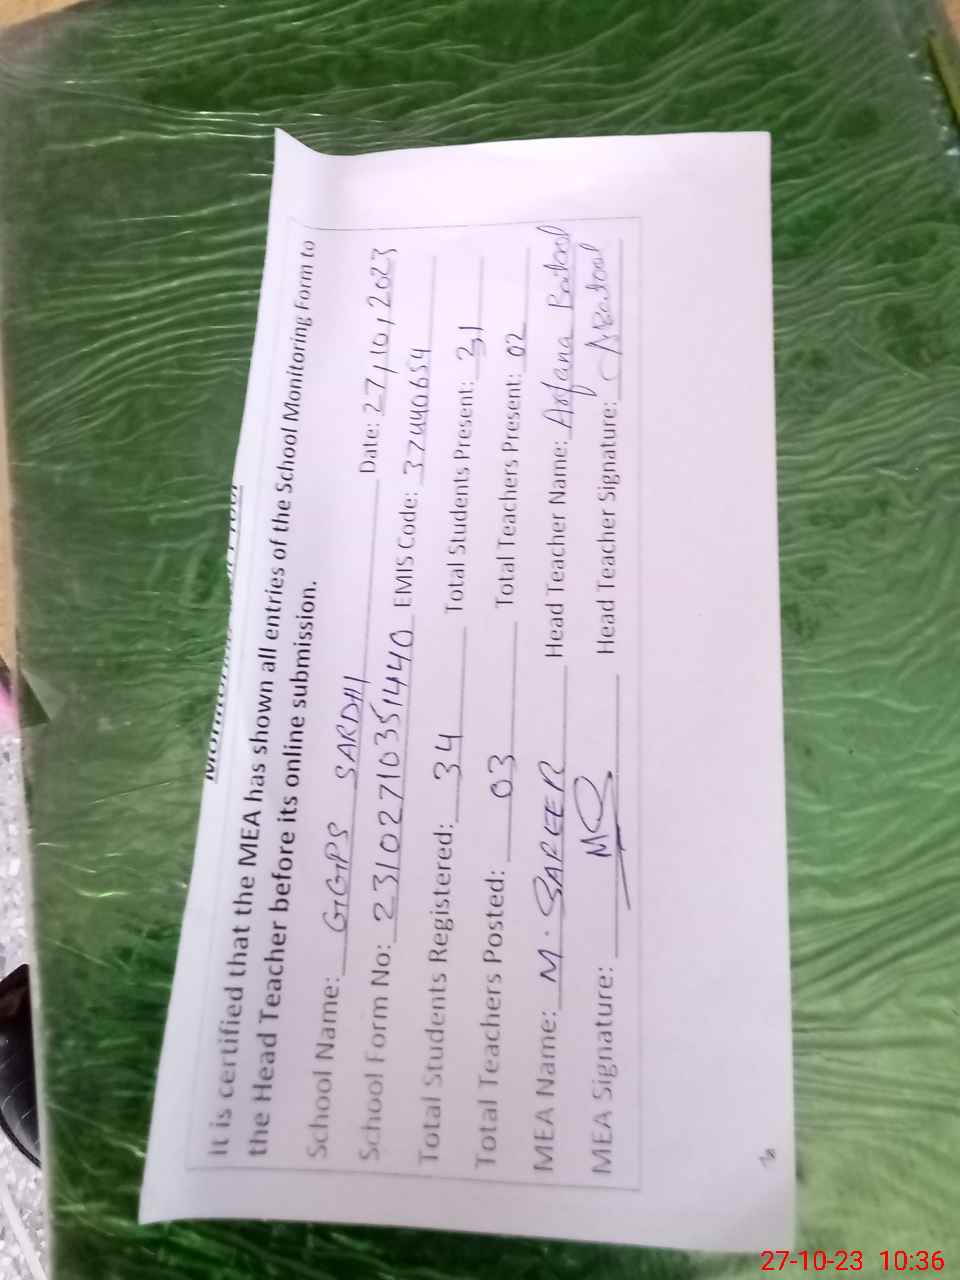 It is certified that the MEA has shown all entries of the School Monitoring Form to
the Head Teacher before its online submission.
School Name: GGPS SARDHI Date: 27/10/2023
School Form No: 23102710351440 EMIS Code: 37440654
Total Students Registered: 34 Total Students Present: 31
Total Teachers Posted: 03 Total Teachers Present: 02
MEA Name: M. SAFEER Head Teacher Name: Arfana Batool
MEA Signature: MS Head Teacher Signature: ABatool
27-10-23 10:36